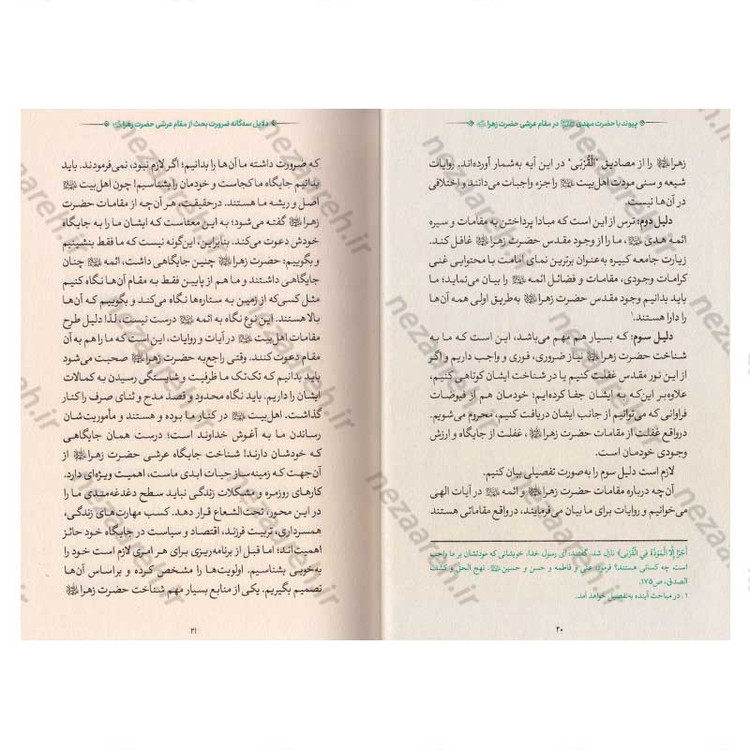 پیوند با حضرت مهدی در مقام عرشی حضرت زهرا
زهرا را از مصادیق "الْقُرْبی" در این آیه به‌شمار آورده‌اند. روایات
شیعه و سنی مودت اهل‌بیت را جزء واجبات می‌دانند و اختلافی
در آن‌ها نیست.
دلیل دوم: ترس از این است که مبادا پرداختن به مقامات و سیره
ائمه هدی، ما را از وجود مقدس حضرت زهرا غافل کند.
زیارت جامعه کبیره به‌عنوان برترین نمای امامت با محتوایی غنی
کرامات وجودی، مقامات و فضائل ائمه را بیان می‌نماید؛ ما
باید بدانیم وجود مقدس حضرت زهرا به‌طریق اولی همه آن‌ها
را دارا هستند.۱
دلیل سوم: که بسیار هم مهم می‌باشد، این است که ما به
شناخت حضرت زهرا نیاز ضروری، فوری و واجب داریم و اگر
از این نور مقدس غفلت کنیم یا در شناخت ایشان کوتاهی کنیم،
علاوه‌بر این‌که به ایشان جفا کرده‌ایم؛ خودمان هم از فیوضات
فراوانی که می‌توانیم از جانب ایشان دریافت کنیم، محروم می‌شویم.
درواقع غفلت از مقامات حضرت زهرا، غفلت از جایگاه و ارزش
وجودی خودمان است.
لازم است دلیل سوم را به‌صورت تفصیلی بیان کنیم.
آن‌چه درباره مقامات حضرت زهرا و ائمه در آیات الهی
می‌خوانیم و روایات برای ما بیان می‌فرمایند، درواقع مقاماتی هستند
أَجْرًا إِلَّا الْمَوَدَّةَ فِي الْقُرْبَى﴾ نازل شد، گفتند: ای رسول خدا، خویشانی که مودتشان بر ما واجب
است چه کسانی هستند؟ فرمود: علی و فاطمه و حسن و حسین. نهج الحق و کشف
الصدق، ص۱۷۵.
۱. در مباحث آینده به‌تفصیل خواهد آمد.
۲۰
دلایل سه‌گانه ضرورت بحث از مقام عرشی حضرت زهرا
که ضرورت داشته ما آن‌ها را بدانیم؛ اگر لازم نبود، نمی‌فرمودند. باید
بدانیم جایگاه ما کجاست و خودمان را بشناسیم! چون اهل‌بیت
اصل و ریشه ما هستند. درحقیقت، هر آن‌چه از مقامات حضرت
زهرا گفته می‌شود؛ به این معناست که ایشان ما را به جایگاه
خودش دعوت می‌کند. بنابراین، این‌گونه نیست که ما فقط بنشینیم
و بگوییم: حضرت زهرا چنین جایگاهی داشت، ائمه چنان
جایگاهی داشتند و ما هم از پایین فقط به مقام آن‌ها نگاه کنیم
مثل کسی‌که از زمین به ستاره‌ها نگاه می‌کند و بگوییم که آن‌ها
بالا هستند. این نوع نگاه به ائمه درست نیست، لذا دلیل طرح
مقامات اهل‌بیت در آیات و روایات، این است که ما را هم به آن
مقام دعوت کنند. وقتی راجع‌به حضرت زهرا صحبت می‌شود
باید بدانیم که تک‌تک ما ظرفیت و شایستگی رسیدن به کمالات
ایشان را داریم. باید نگاه محدود و قصد مدح و ثنای صرف را کنار
گذاشت. اهل‌بیت در کنار ما بوده و هستند و مأموریت‌شان
رساندن ما به آغوش خداوند است؛ درست همان جایگاهی
که خودشان دارند! شناخت جایگاه عرشی حضرت زهرا از
آن‌جهت که زمینه‌ساز حیات ابدی ماست، اهمیت ویژه‌ای دارد.
کارهای روزمره و مشکلات زندگی نباید سطح دغدغه‌مندی ما را
در این محور، تحت‌الشعاع قرار دهد. کسب مهارت‌های زندگی،
همسرداری، تربیت فرزند، اقتصاد و سیاست در جایگاه خود حائز
اهمیت‌اند؛ اما قبل از برنامه‌ریزی برای هر امری لازم است خود را
به‌خوبی بشناسیم. اولویت‌ها را مشخص کرده و براساس آن‌ها
تصمیم بگیریم. یکی از منابع بسیار مهم شناخت حضرت زهرا
۲۱
nezaareh.ir